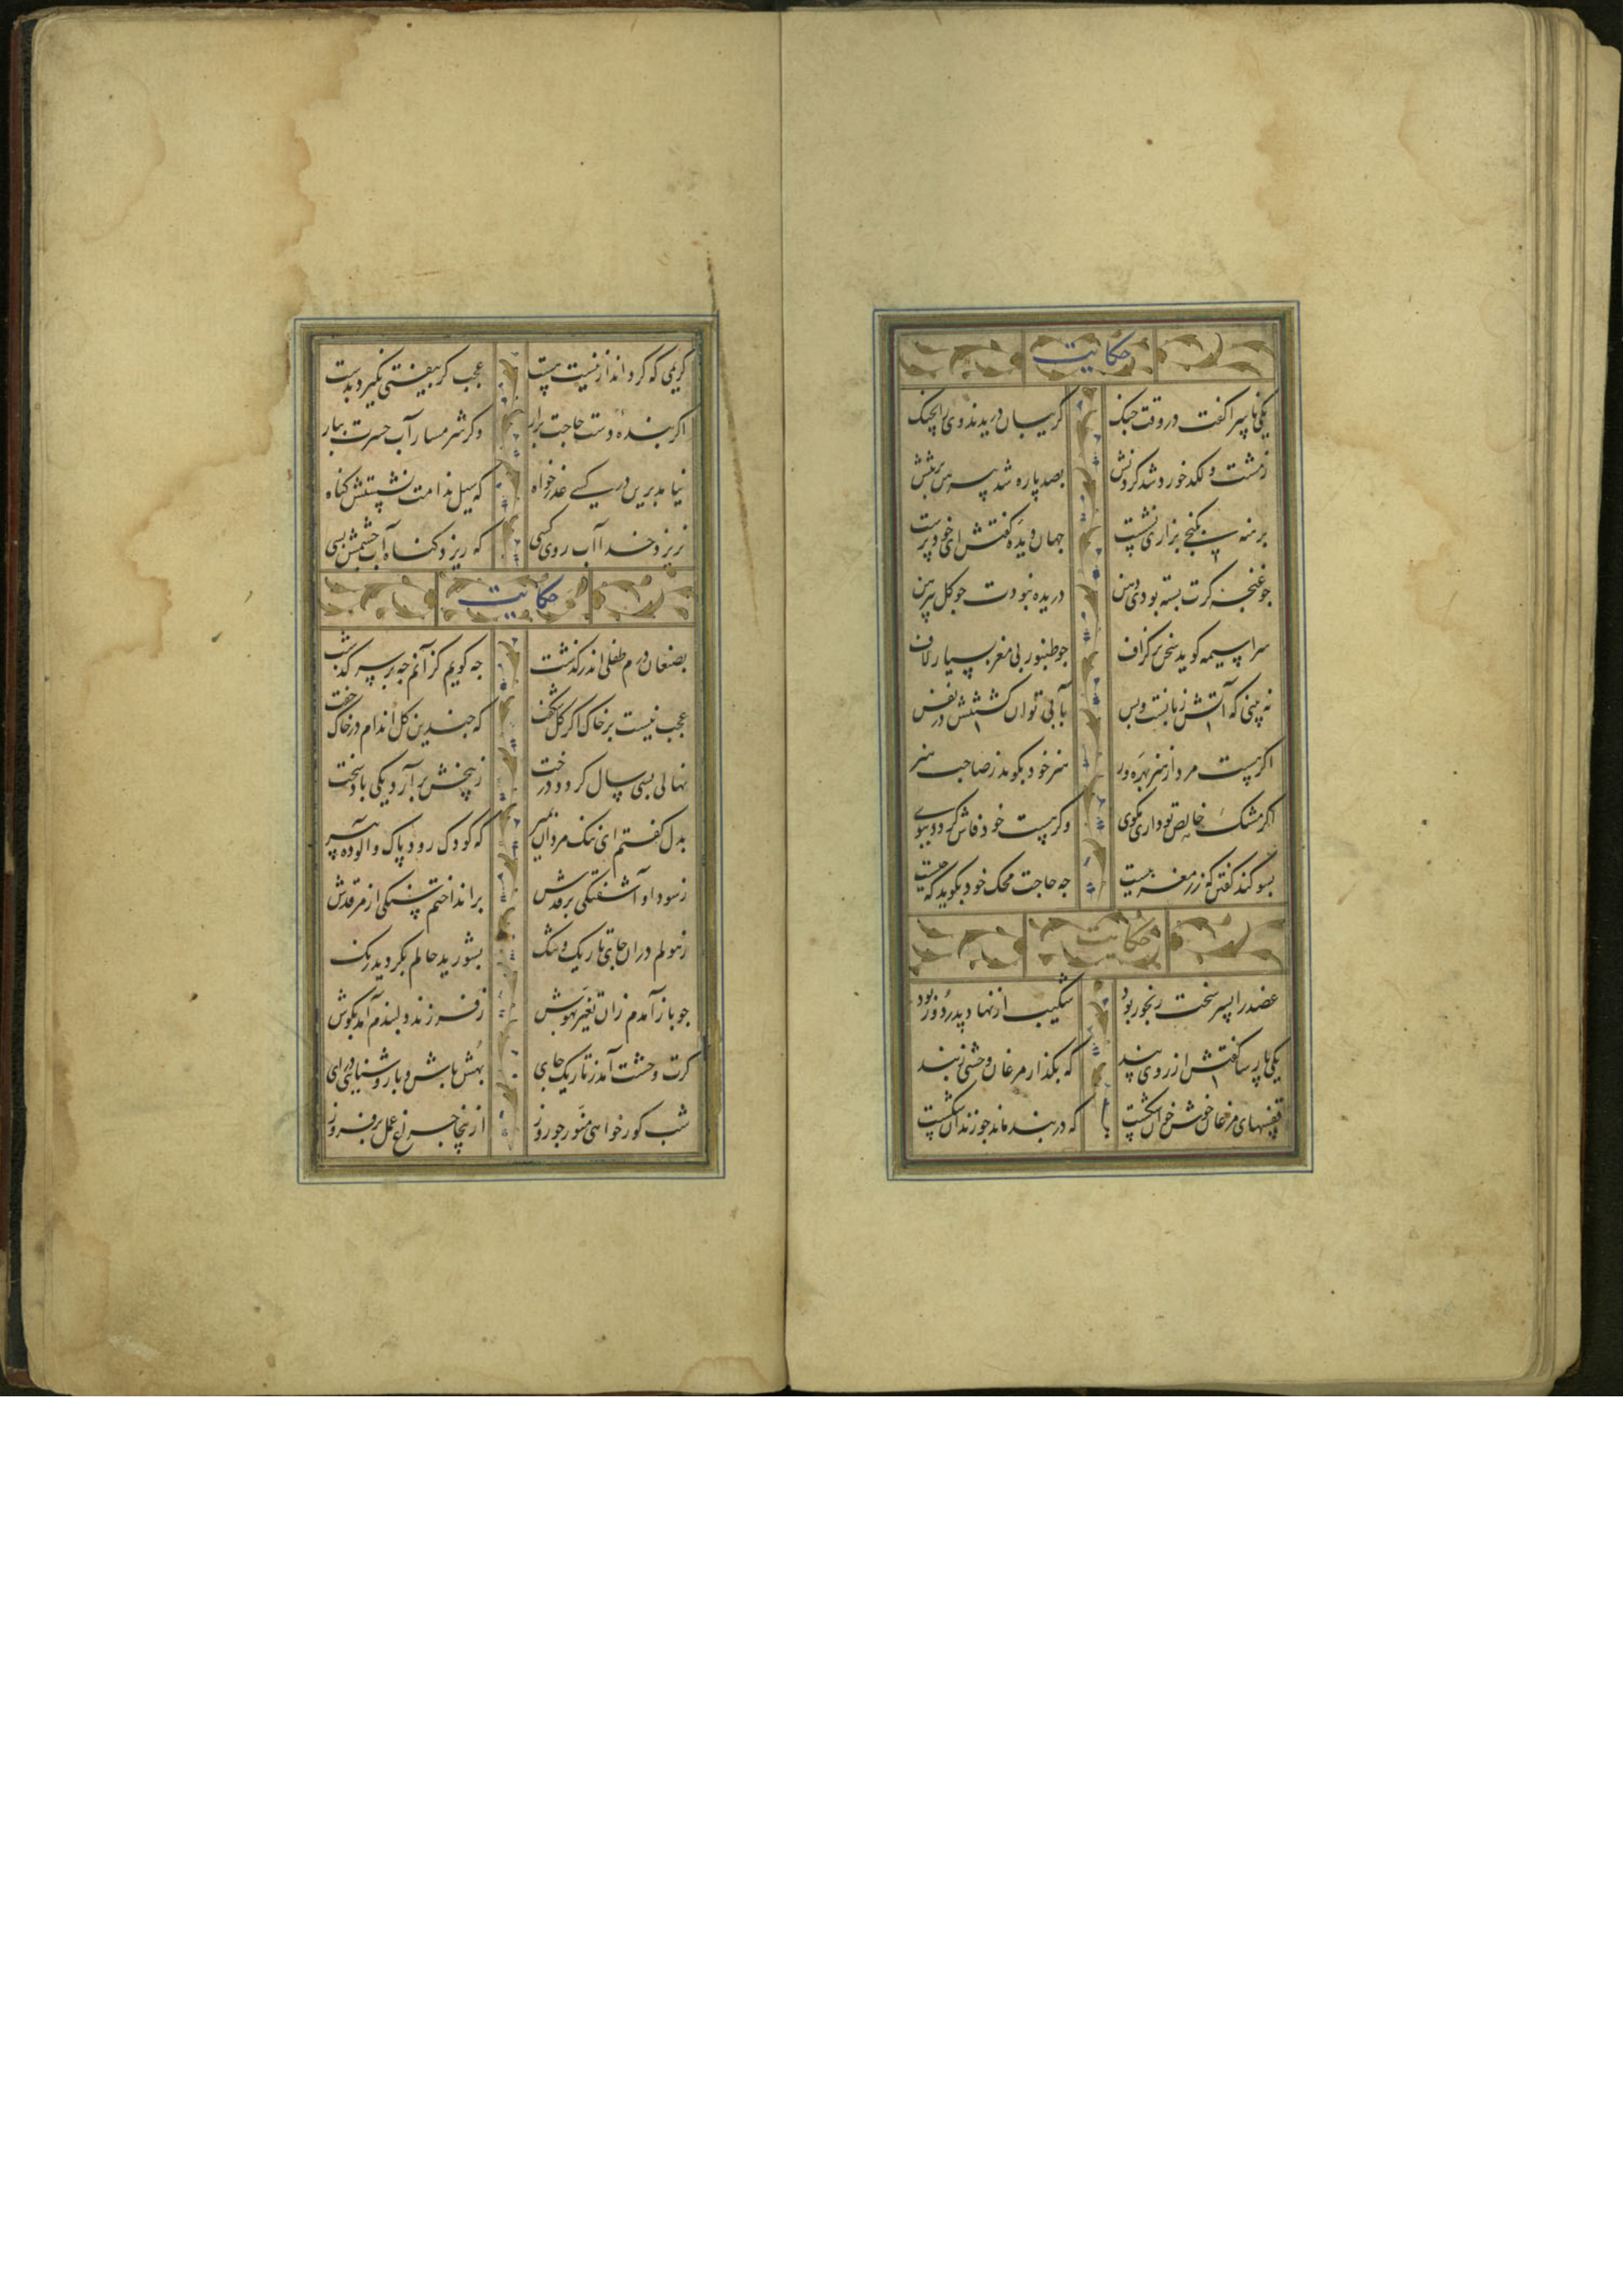 حکایت
یکی ناسزا گفت در وقت جنک کریبان دریدند وی را بچنک
زمشت و لکد خورد شد کردنش بصد پاره شد پیرهن بر تنش
برهنه بکنجی بزاری نشست جهان دیده گفتش ای خود پرست
جو غنچه کرت بسته بودی دهن دریده نبودت جو کل پیرهن
سراسیمه کوید سخن بر کزاف جو طنبور بی مغز بسیار لاف
نه بینی که آتش زبانست و بس بآبی توان کشتنش در نفس
اکر هست مرد از هنر بهره ور هنر خود بکوید نه صاحب هنر
اکر مشک خالص تو داری مکوی وکر هست خود فاش کردد ببوی
بسوکند کفتن که زر مغربیست جه حاجت محک خود بکوید که جیست
حکایت
عضد را پسر سخت رنجور بود شکیب از نهاد پدر دور بود
یکی پارسا کفتش از روی پند که بکذار مرغان وحشی زبند
قفسهای مرغان خوش خوان شکست که در بند ماند جو زندان شکست
کریمی که کردانداز نیست هست عجب کر بیفتی نکیرد بدست
اکر بنده دست حاجت برار وکر شرمسار آب حسرت ببار
نیامد برین در کسی عذر خواه که سیل ندامت نشستش کناه
نریزد خدا آب روی کسی که ریزد کناه آب جشمش بسی
حکایت
بصنعان درم طفلی اندر کذشت جه کویم کزآنم جه بر سر کذشت
عجب نیست بر خاک اکر کل شکفت که جندین کل اندام در خاک خفت
نهالی بسی سال کردد درخت زبیخش بر آرد یکی باد سخت
بدل کفتم ای ننک مردان بمیر که کودک رود پاک و آلوده پیر
زسودا و آشفتکی بر قدش بر انداختم سنکی از مرقدش
زهولم دران جای تاریک و تنک بشورید حالم بکردید رنک
جو باز آمدم زان تغیر بهوش زفرزند دلبندم آمد بکوش
کرت وحشت آمد ز تاریک جای بهش باش و با روشنایی در ای
شب کور خواهی منور جو روز ازینجا جراغ عمل بر فروز